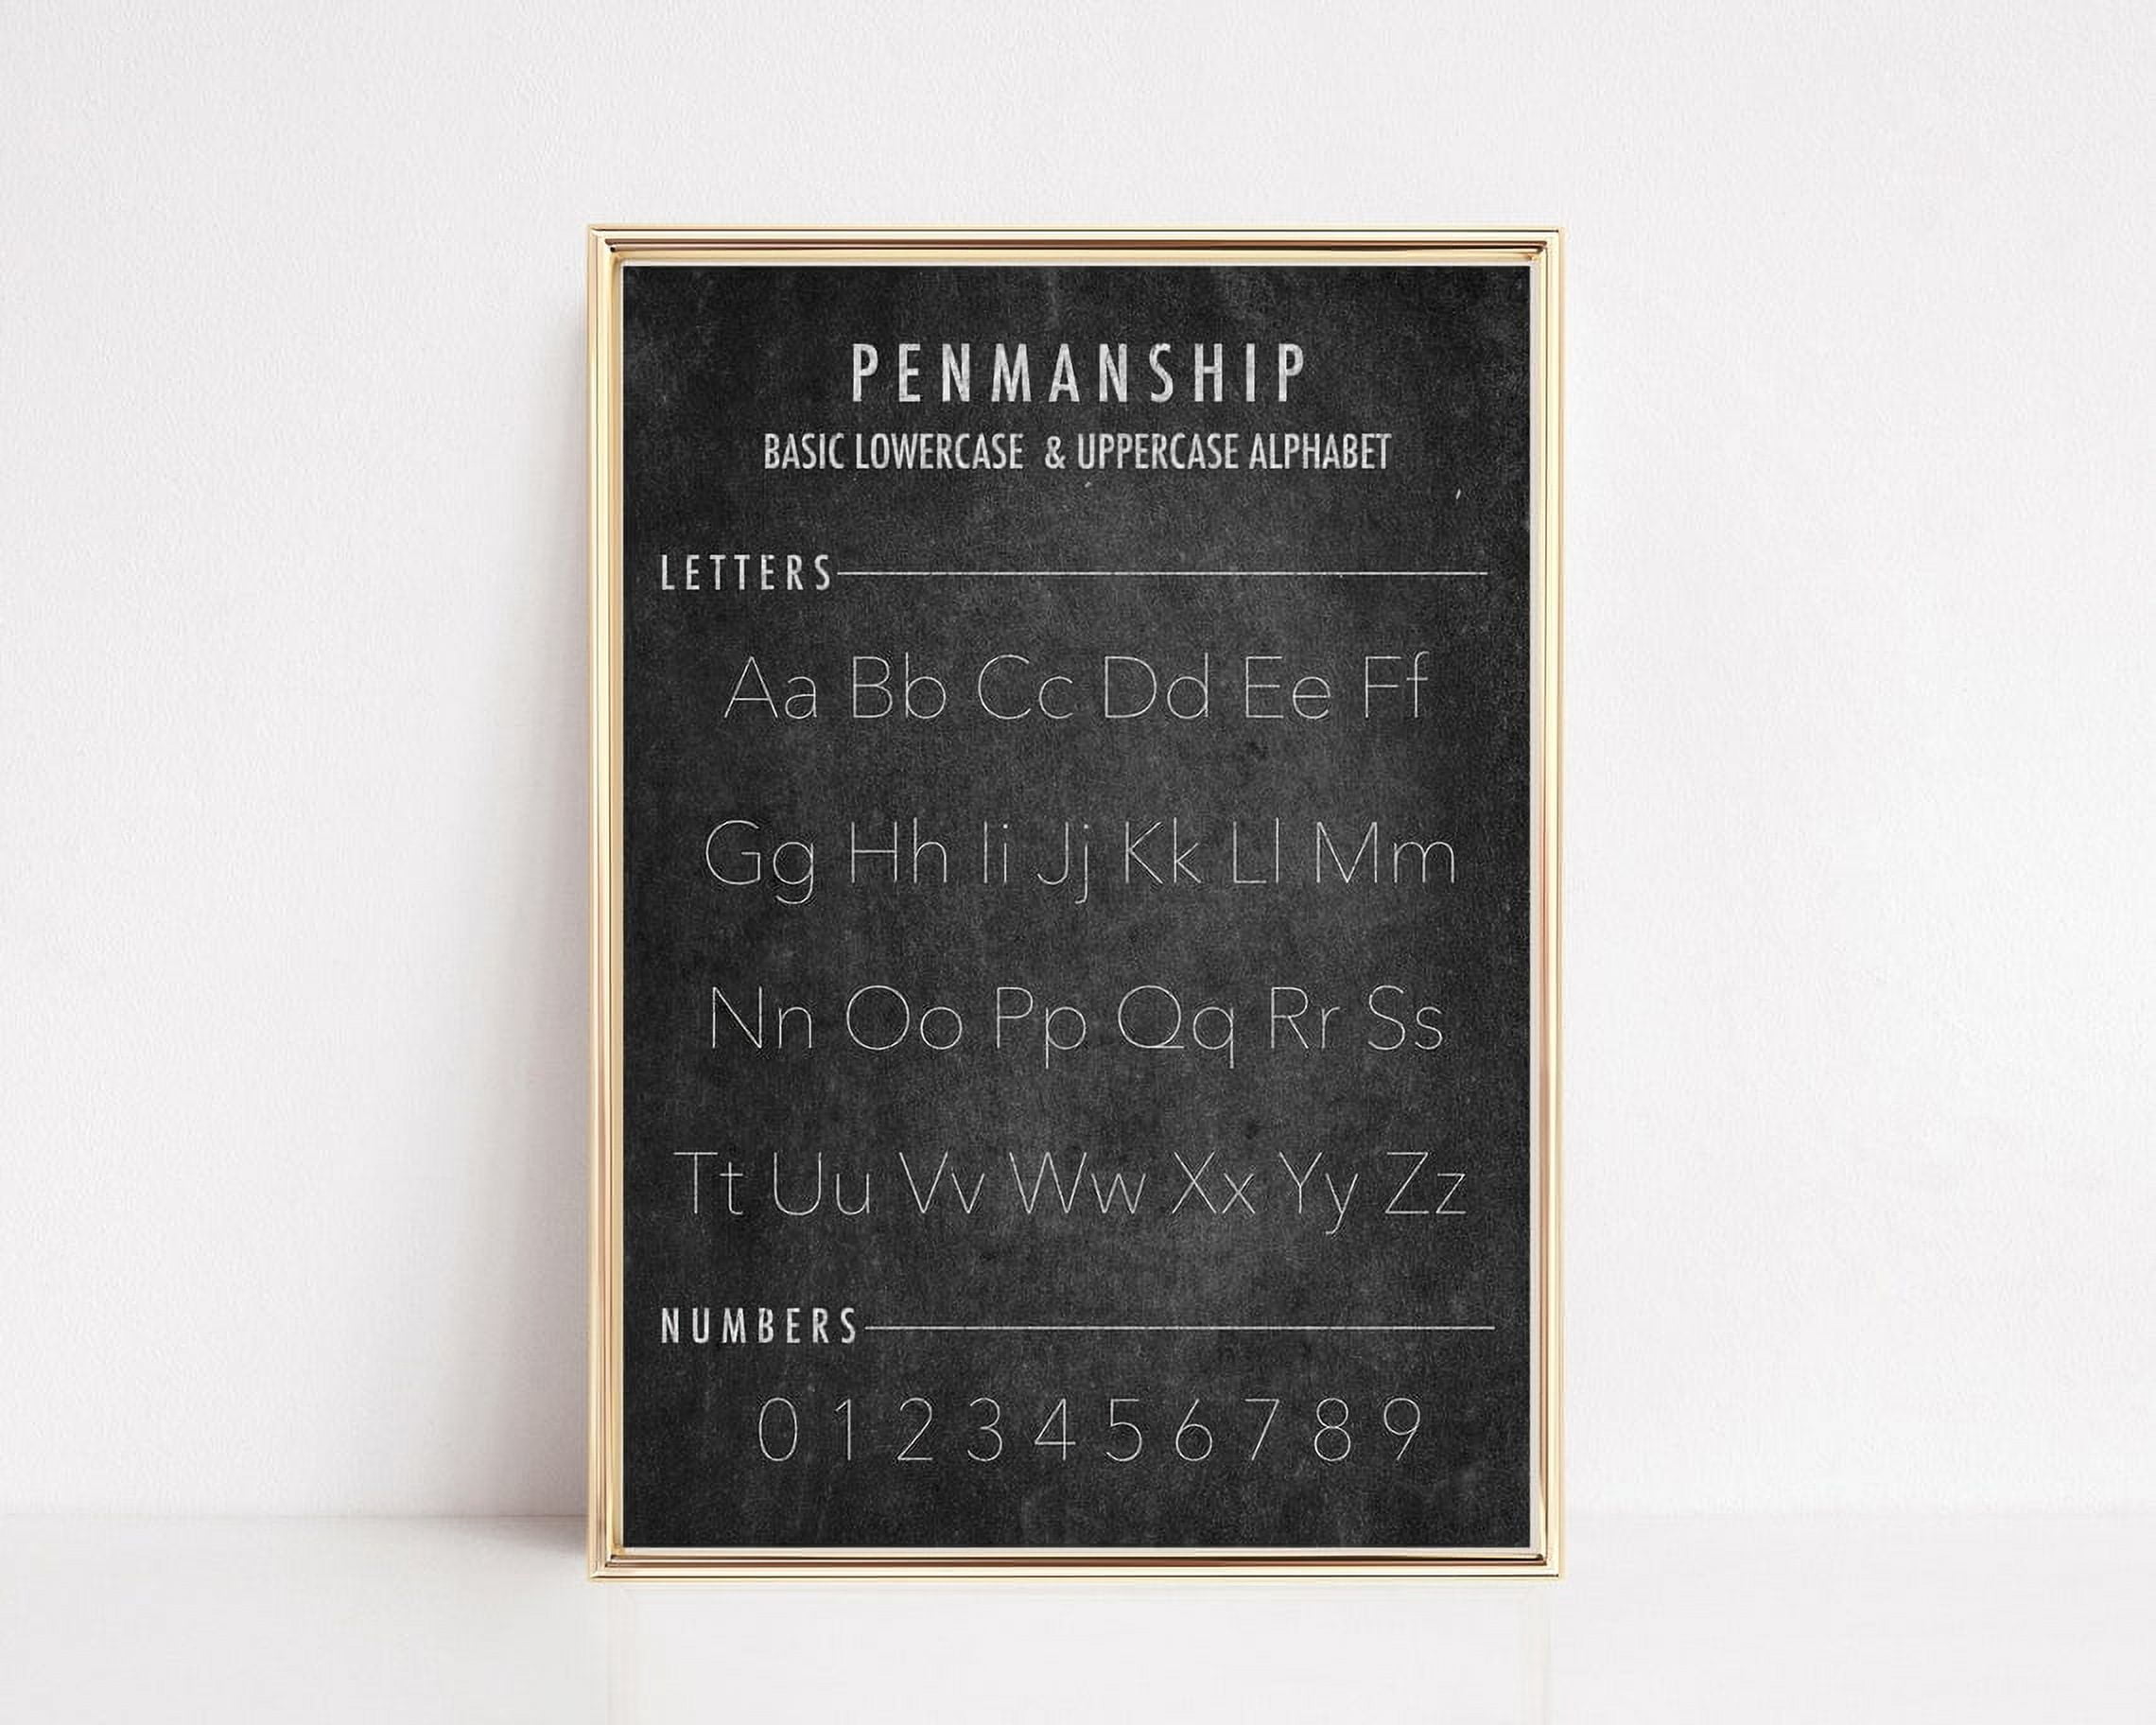 PENMANSHIP
BASIC LOWERCASE & UPPERCASE ALPHABET
LETTERS
Aa Bb Cc Dd Ee Ff
Gg Hh Ii Jj Kk Ll Mm
Nn Oo Pp Qq Rr Ss
Tt Uu Vv Ww Xx Yy Zz
NUMBERS
0 1 2 3 4 5 6 7 8 9